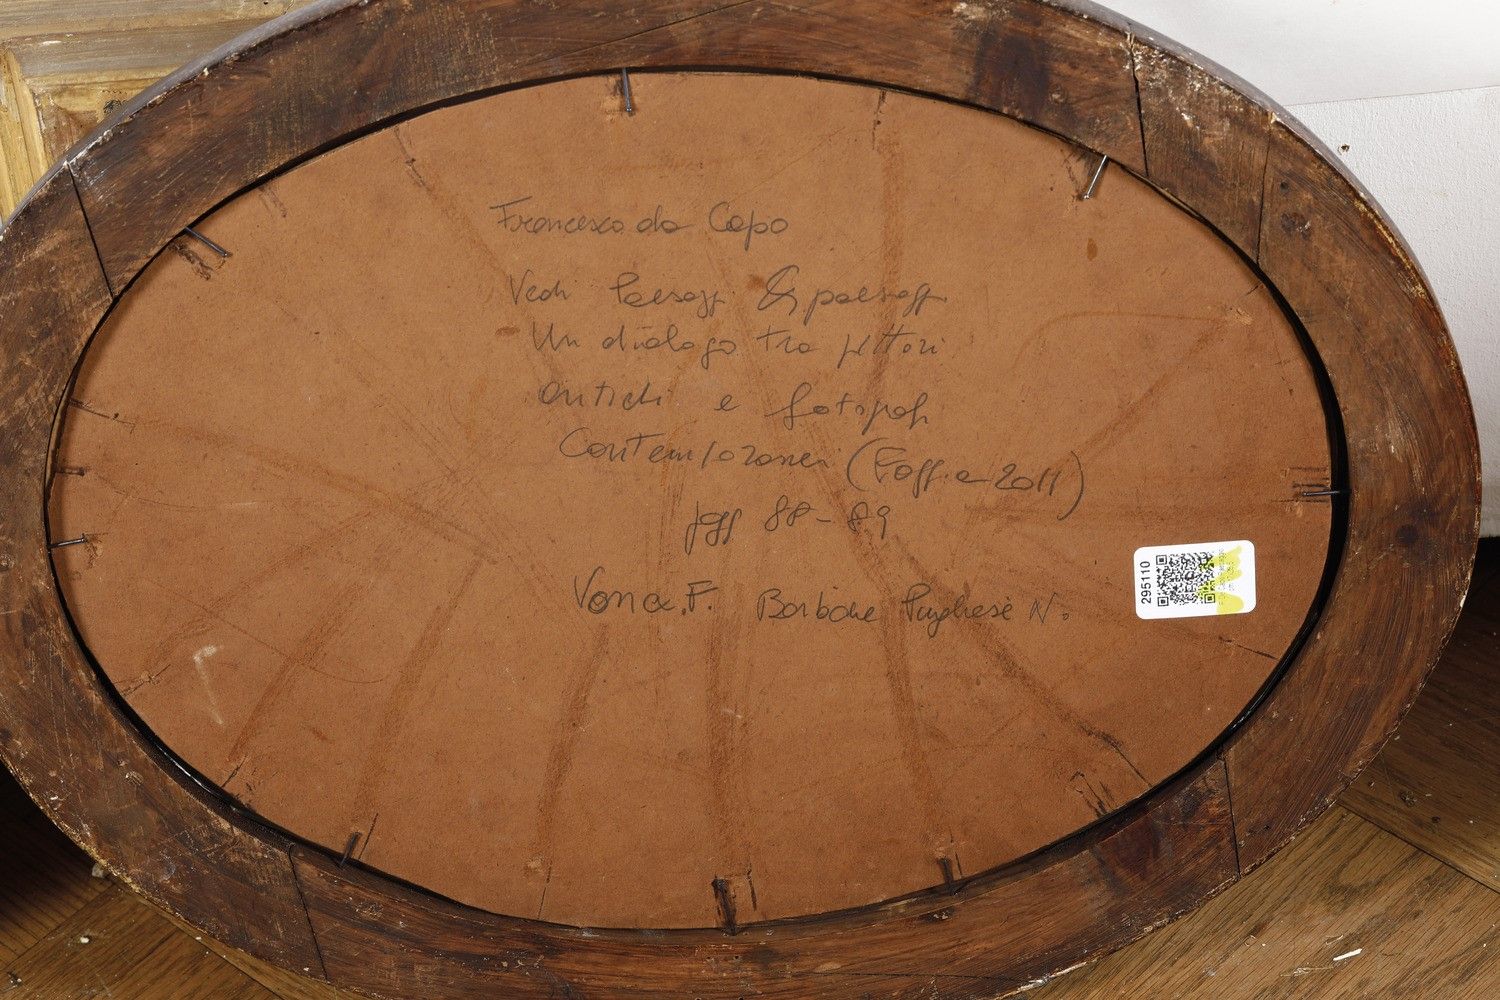 Francesco da Capo
Vedi Paesaggi & paesaggi
Un dialogo tra pittori
antichi e fotografi
Contemporanei (Foggia 2011)
pgg 88-89
Vona. F. Barbone Pugliese N.
295110